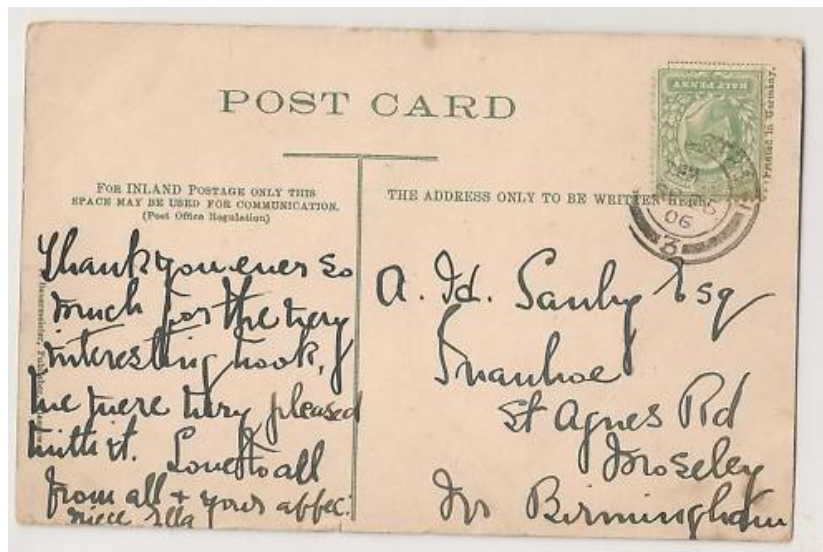 POST CARD
FOR INLAND POSTAGE ONLY THIS
SPACE MAY BE USED FOR COMMUNICATION.
(Post Office Regulation)
THE ADDRESS ONLY TO BE WRITTEN HERE.
HALF PENNY
Printed in Germany.
06
3
Thank you ever so
much for the very
interesting book,
we were very pleased
with it. Love to all
from all & yours affec:
niece Ella
A. Ed. Sanby Esq
Ivanhoe
St Agnes Rd
Moseley
Nr Birmingham